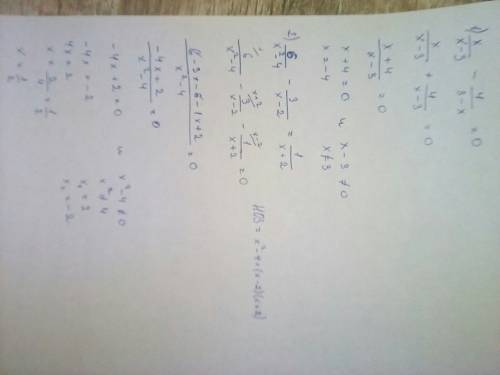 1) x/(x-3) - 4/(3-x) = 0
x/(x-3) + 4/(x-3) = 0
(x+4)/(x-3) = 0
x+4=0 и x-3≠0
x=-4 x≠3
2) 6/(x²-4) - 3/(x-2) = 1/(x+2)
6/(x²-4) - 3/(x-2) - 1/(x+2) = 0
(6-3x-6-1x+2)/(x²-4) = 0
(-4x+2)/(x²-4) = 0
-4x+2=0 и x²-4≠0
-4x=-2 x²≠4
4x=2 x₁=2
x=2/4=1/2 x₂=-2
x=1/2